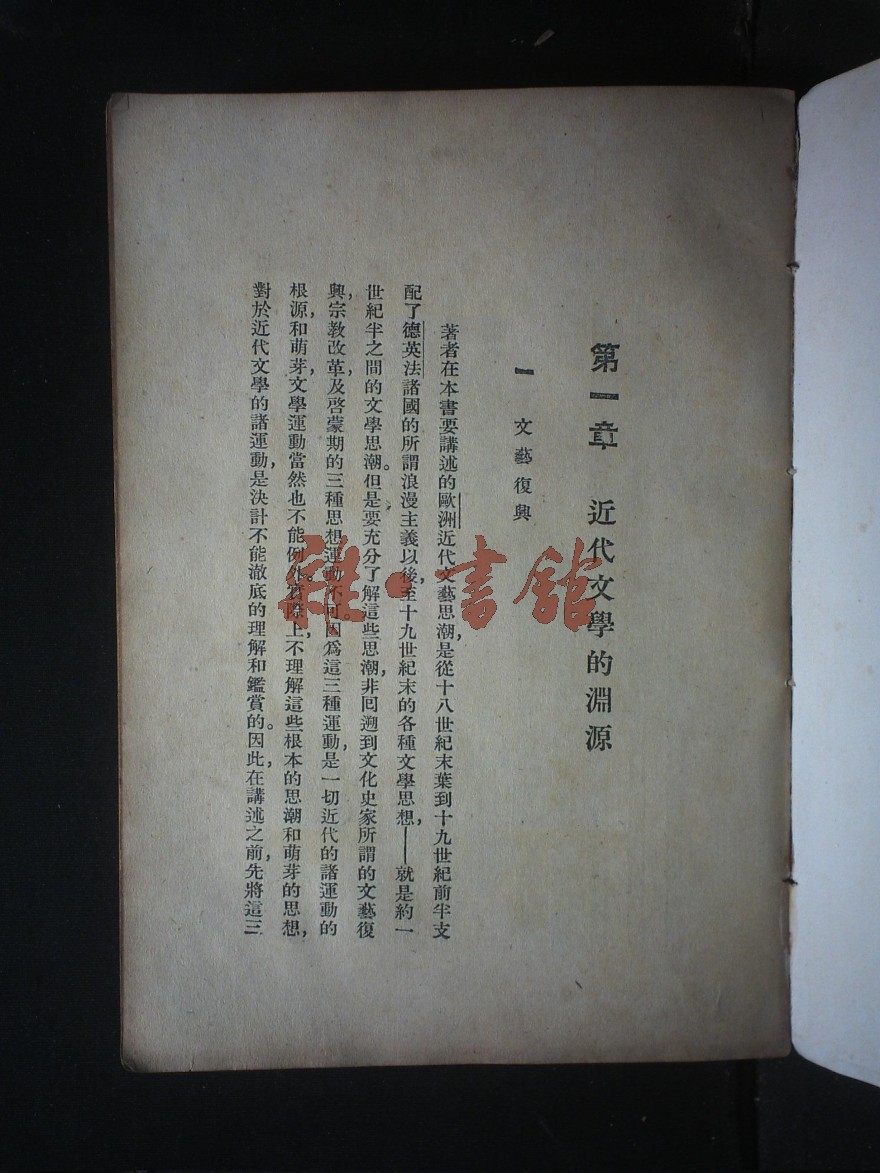 第一章　近代文學的淵源
一　文藝復興
著者在本書要講述的歐洲近代文藝思潮，是從十八世紀末葉到十九世紀前半支
配了德英法諸國的所謂浪漫主義以後，至十九世紀末的各種文學思想，——就是約一
世紀半之間的文學思潮。但是要充分了解這些思潮，非回遡到文化史家所謂的文藝復
興，宗教改革，及啓蒙期的三種思想運動不可。因爲這三種運動，是一切近代的諸運動的
根源，和萌芽，文學運動當然也不能例外。實際上，不理解這些根本的思潮和萌芽的思想，
對於近代文學的諸運動，是決計不能澈底的理解和鑑賞的。因此，在講述之前，先將這三
雜·書館